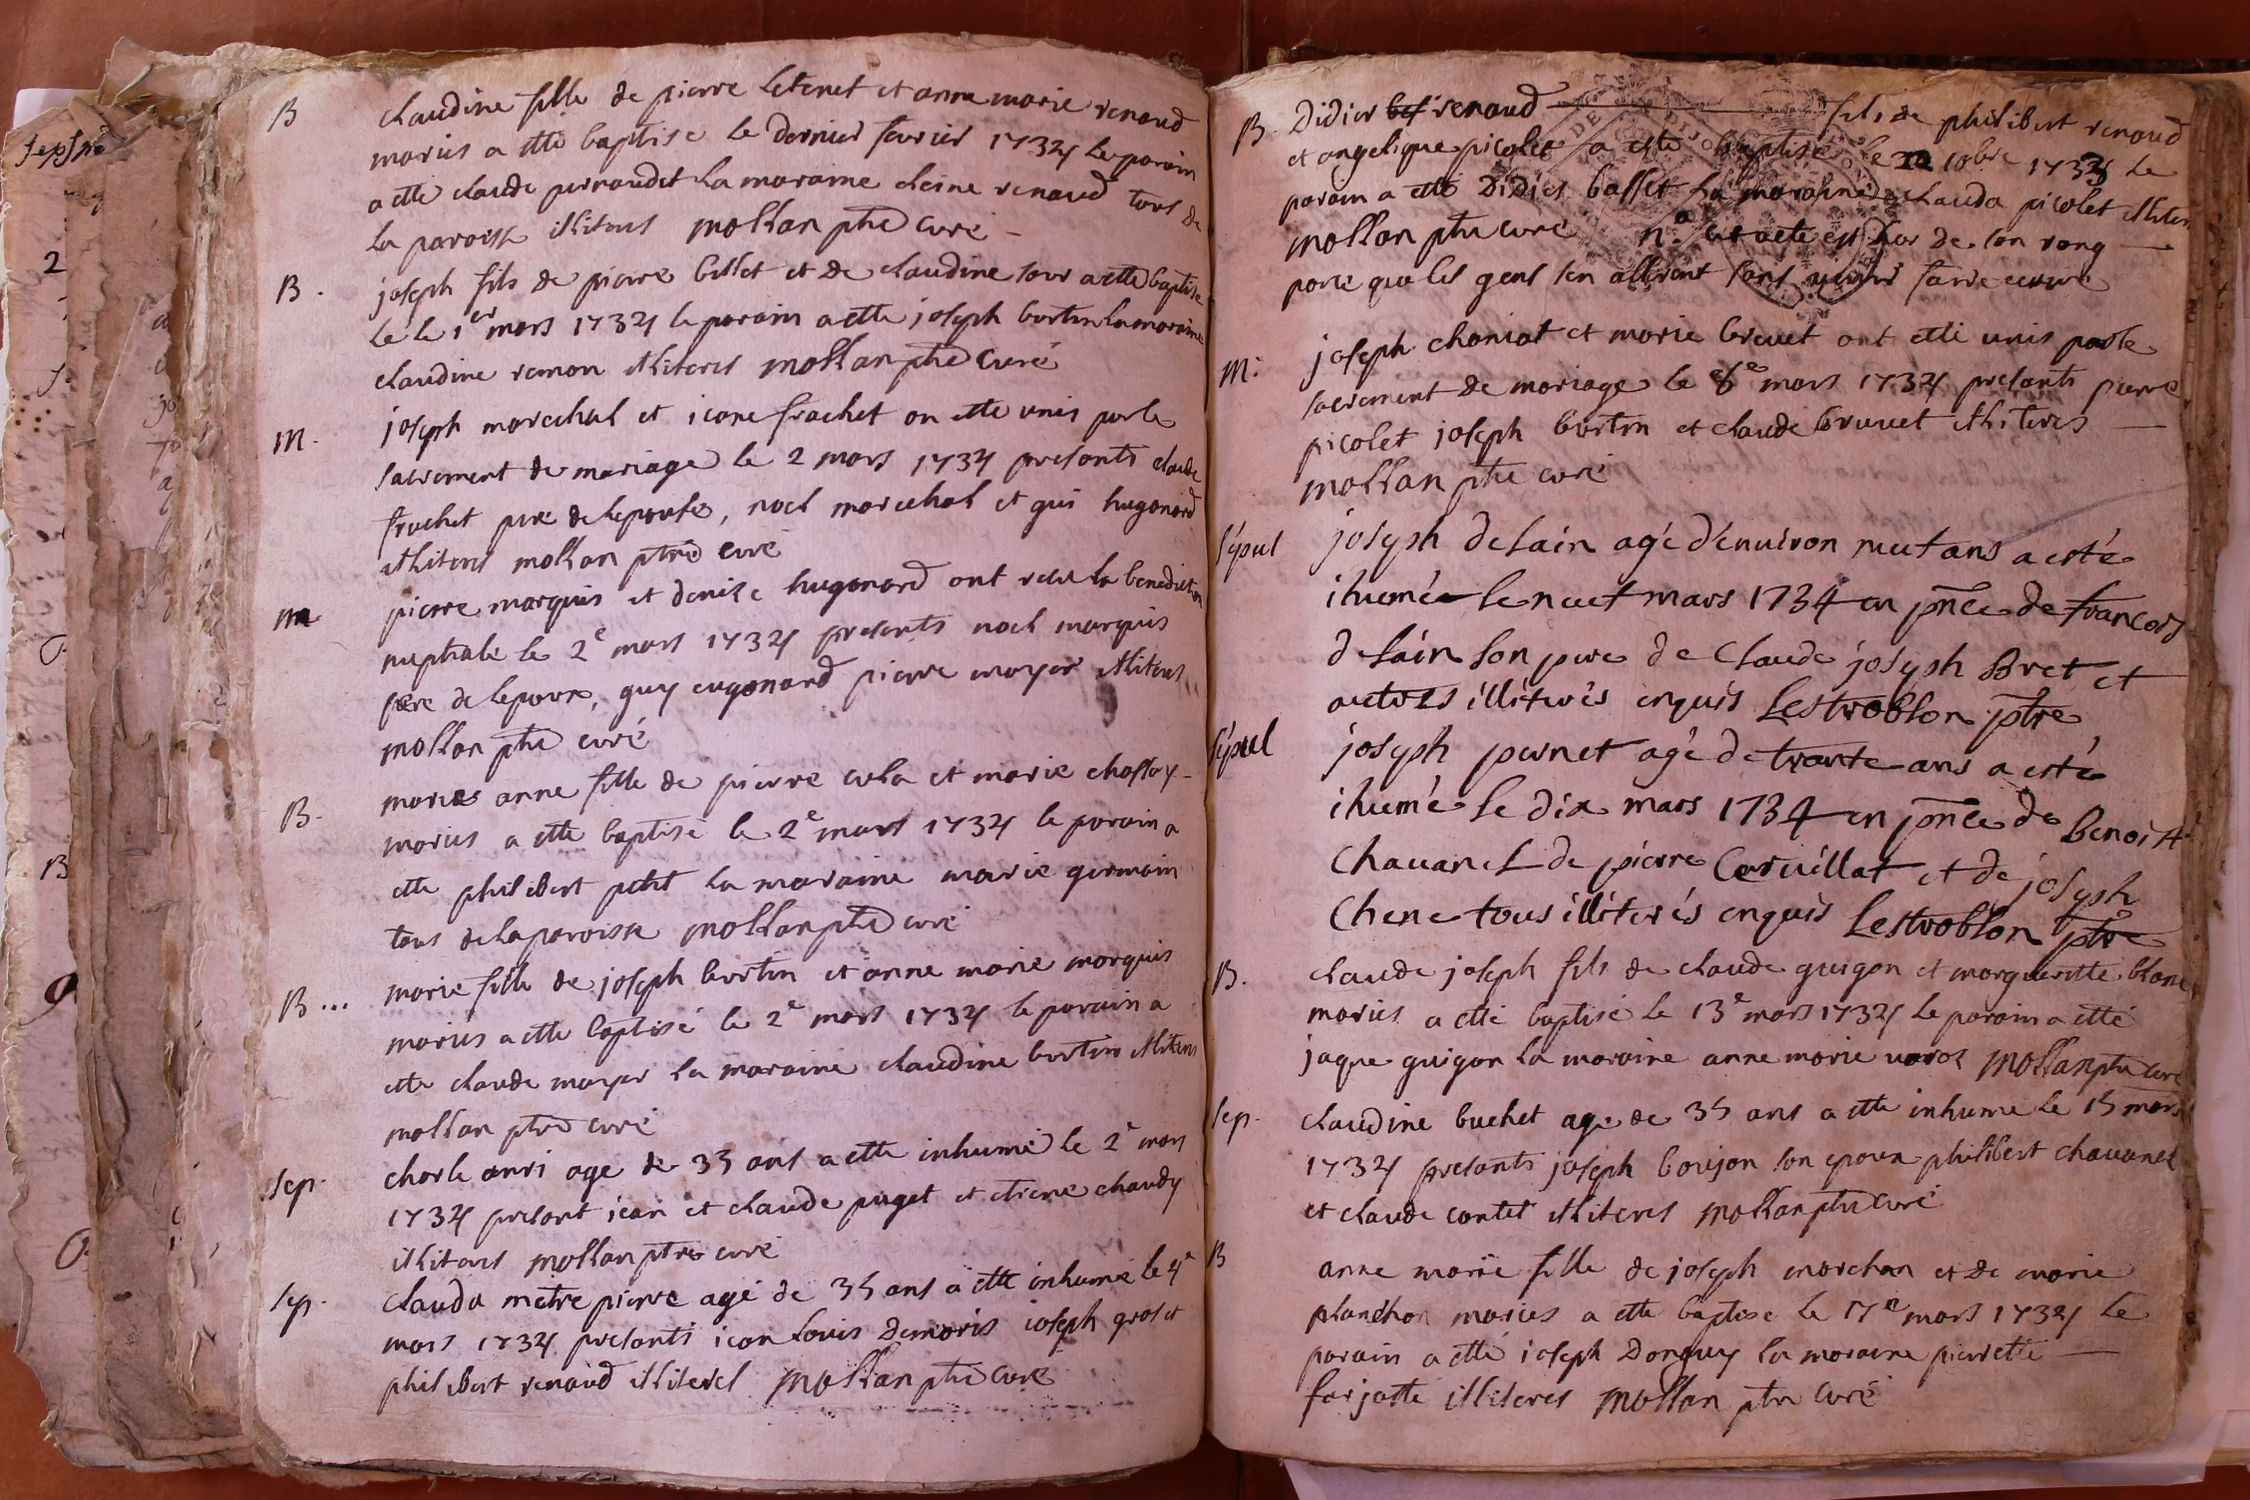 B claudine fille de pierre Letenet et anne marie renaud
mariés a etté baptisé le dernier fevrier 1734 le parain
a etté claude pernaudet la maraine cleine renaud tous de
la paroisse illiteres mollan ptre curé
B. joseph fils de pierre billet et de claudine lour a etté baptisé
le le 1er mars 1734 le parain a etté joseph burtin la maraine
claudine ramon illiteres mollan ptre curé
m. joseph marechal et jeane frachet on etté unis par le
sacrement de mariage le 2 mars 1734 presants claude
frachet pere de lepouse, noel marechal et gui hugonard
illiteres mollan ptre curé
m pierre marquis et denise hugonard ont recu la benediction
nuptiale le 2e mars 1734 presents noel marquis
pere de lepoux, guy eugonard pierre moyer illiteres
mollan ptre curé
B. marie anne fille de pierre cula et marie chastay
mariés a etté baptisé le 2e mars 1734 le parain a
etté philibert petit la maraine marie germain
tous de la paroisse mollan ptre curé
B... marie fille de joseph burtin et anne marie marquis
mariés a etté baptisé le 2e mars 1734 le parain a
etté claude moyer la maraine claudine burtin illiteres
mollan ptre curé
sep. charle anri age de 35 ans a etté inhumé le 2e mars
1734 presant jean et claude puget et etiene chaudy
illiteres mollan ptre curé
sep. clauda metre pierre agé de 35 ans a etté inhumé le 4e
mars 1734 presants jean louis demoris joseph gros et
philibert renaud illiteres mollan ptre curé
B. Didier bef renaud fils de philibert renaud
et angelique picolet a esté baptisé le 10bre 1733 le
parain a etté Didier basset la maraine clauda picolet illiter
mollan ptre curé n.a cet acte est hor de son rang
parce que les gens sen allerent sans faire ecrire
m: joseph chaniat et marie brevet ont etté unis par le
sacrement de mariage le 8e mars 1734 presants pierre
picolet joseph burtin et claude bruuet illiteres
mollan ptre curé
sépul joseph delain agé d'enuiron neuf ans a esté
ihumé le neuf mars 1734 en pnce de francois
delain son pere de Claude joseph Bret et
autres illiterés enquis Lestroblon ptre
sépul joseph pernet agé de trante ans a esté
ihumé le dix mars 1734 en pnce de Benoist
chauanel de pierre Ceruillat et de joseph
Chene tous illiterés enquis Lestroblon ptre
B. claude joseph fils de claude guigon et margueritte blanc
mariés a etté baptisé le 13e mars 1734 le parain a etté
jaque guigon la maraine anne marie uarot mollan ptre curé
sep. claudine buchet age de 35 ans a etté inhumé le 15 mars
1734 presants joseph boujon son epoux philibert chauanel
et claude contet illiteres mollan ptre curé
B anne marie fille de joseph marchan et de marie
planchon mariés a etté baptisé le 17e mars 1734 le
parain a etté joseph Donguy la maraine pierrette
farjatte illiteres mollan ptre curé